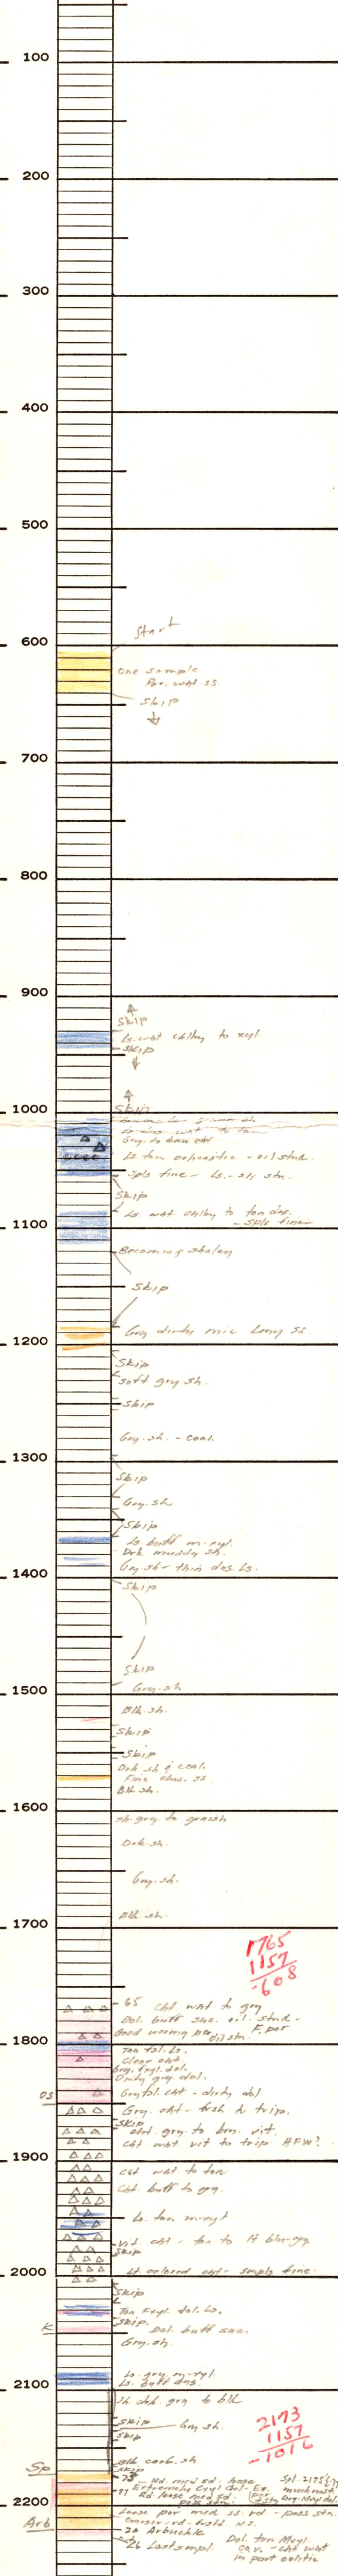 100
200
300
400
500
Start
600
One sample
Por. wht. ss.
Skip
700
800
900
Skip
Ls. wht chlky to xyl.
Skip
1000
Skip
Gry. to brn cht
Ls tan oolicastic - oil stnd.
Spls fine - Ls. - sli stn.
Skip
Ls. wht chlky to tan dns.
- Spls finer
1100
Becoming shaley
Skip
Gry dirty mic Lmy ss.
1200
Skip
Soft gry sh.
Skip
Gry. sh. - coal.
1300
Skip
Gry. sh
Skip
Ls. buff m-xyl.
Drk muddy sh.
Gry sh - thin dns. Ls.
1400
Skip
Skip
Gry. sh
1500
Blk. sh.
Skip
Skip
Drk sh & coal.
Fine clus. ss.
Blk sh.
1600
Sh gry to gnish
Drk. sh.
Gry. sh.
Blk. sh.
1700
1765
1157
-608
65 Cht wht to gry
Dol. buff suc. oil. stnd -
F. por
Good vuggy por.
Oil stn.
1800
Tan fxl. Ls.
Clear cht.
Gry. fxyl. dol.
Dirty gry dol.
OS
Gry fxl. cht - dirty dol
Gry. cht - frsh to trip.
Skip
Cht. gry to brn. vit.
Cht wht vit to trip HFW?
1900
Cht wht to tan
Cht buff to gry.
Ls. tan m-xyl
Vit cht - tan to lt blu-gry
Skip
Lt. colored cht - smpls fine.
2000
Skip
Tan Fxyl. dol. Ls.
Skip.
K
Dol. buff suc.
Gry. sh.
Ls. gry m-xyl.
Ls. buff dns.
2100
Sh drk. gry to blk
Skip
Gry sh.
Skip
2173
1157
-1016
Blk carb. sh
Sp
Skip
73
Rd. med sd. loose
Extremely Cxyl dol - Ex.
81 Rd. loose med sd.
poss stn.
2200
Loose por med ss. rd - poss stn.
Coarser - rd. - hold. N.S.
Arb
20 Arbuckle
26 Last smpl.
Dol. tan Mxyl.
Cht wht
in part oolitic